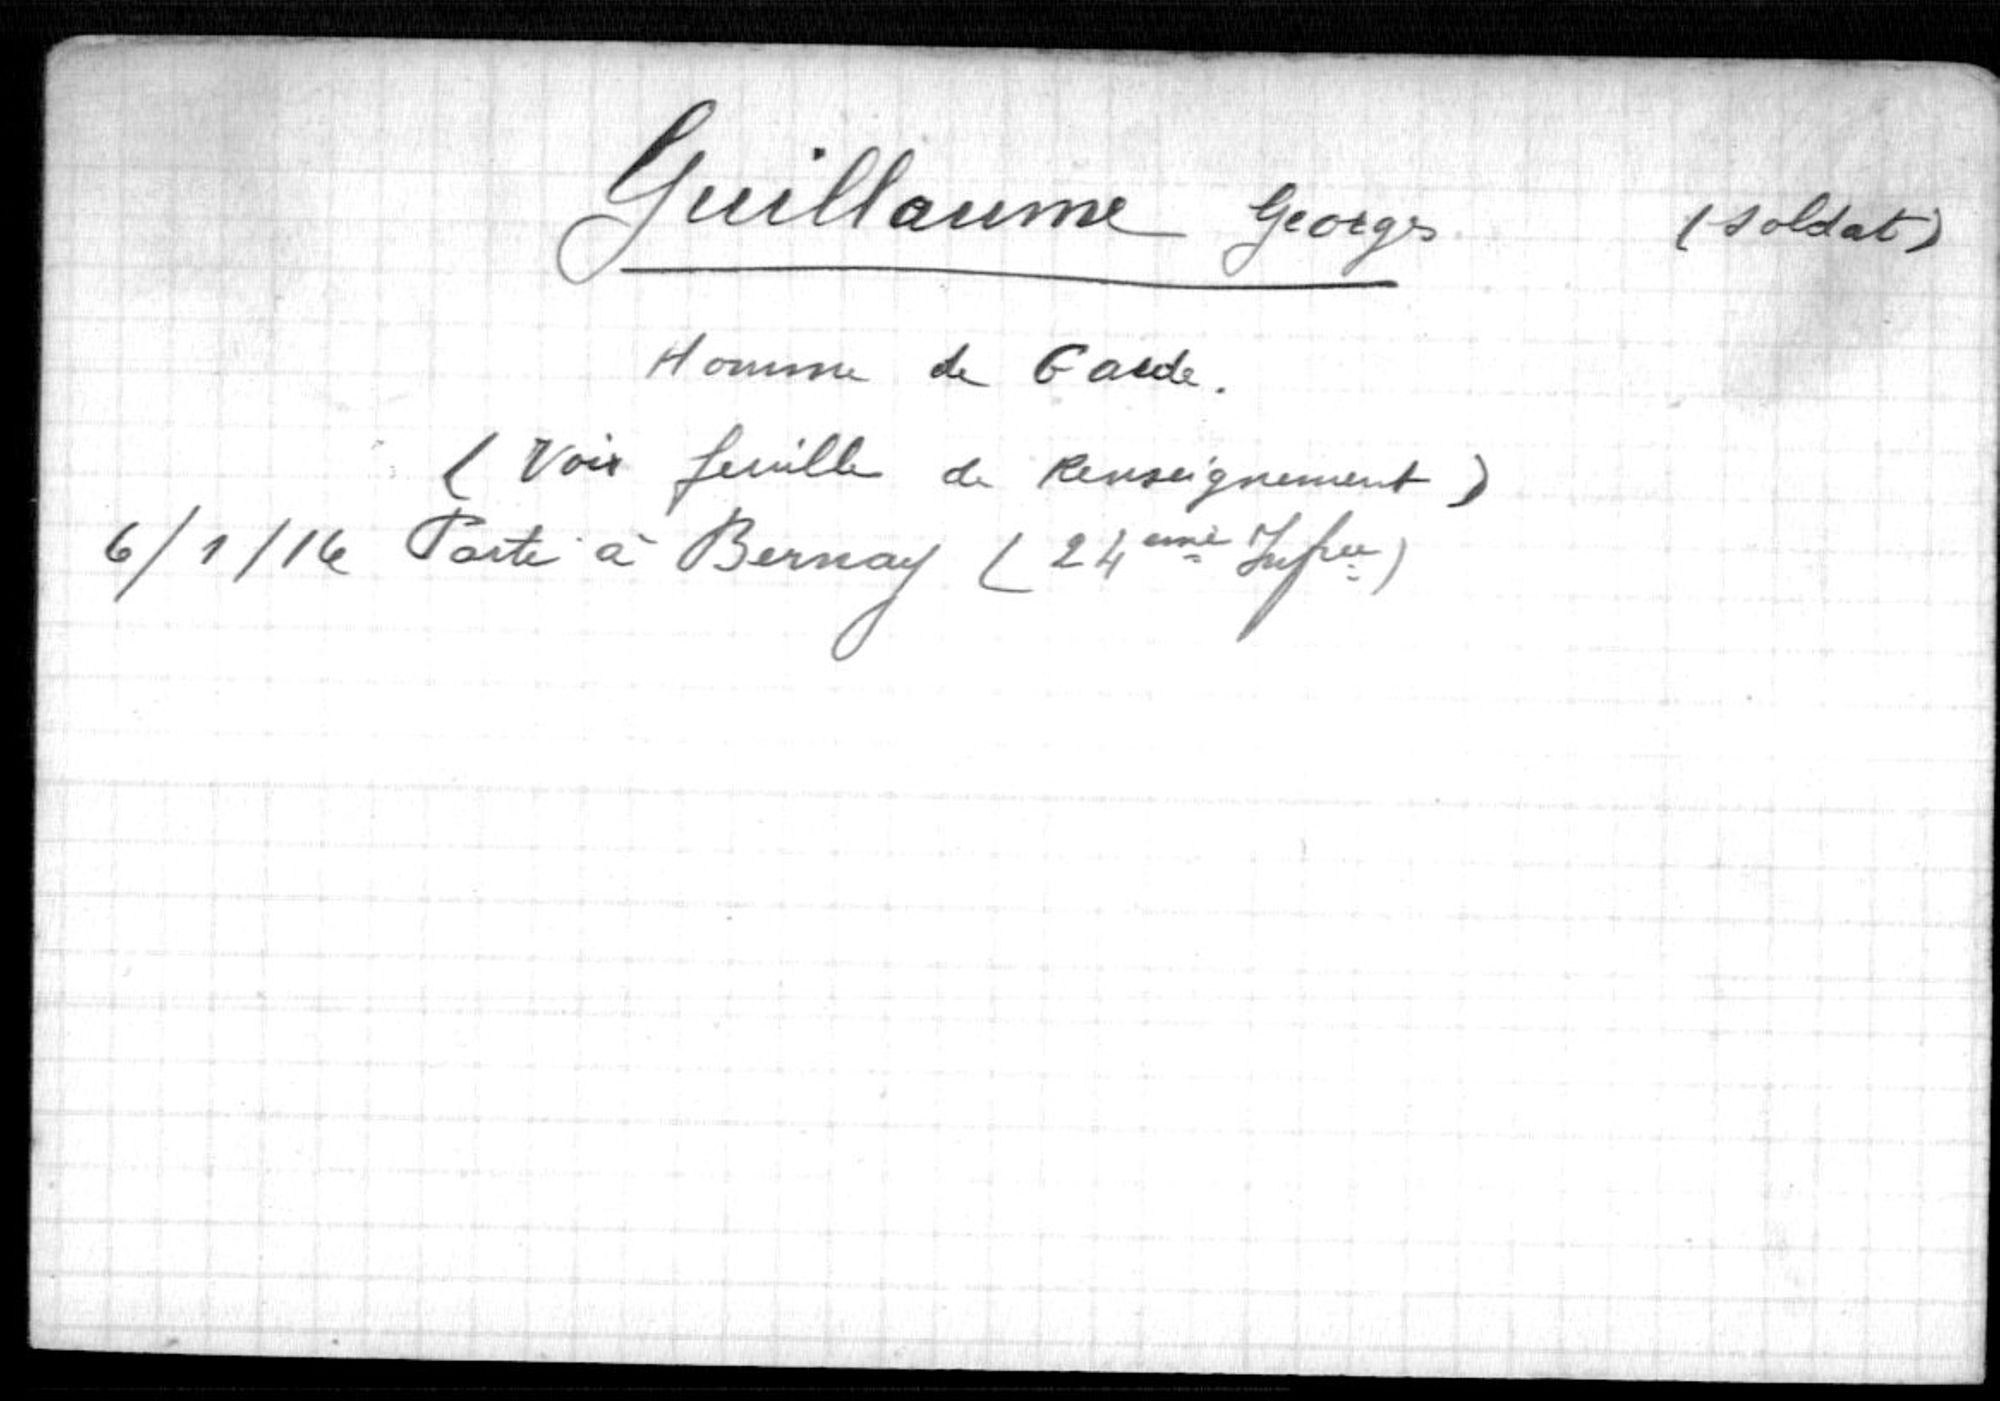 Guillaume Georges (soldat)
Homme de Garde.
(Voir feuille de Renseignement)
6/1/16 Parti à Bernay (24eme Infrie)